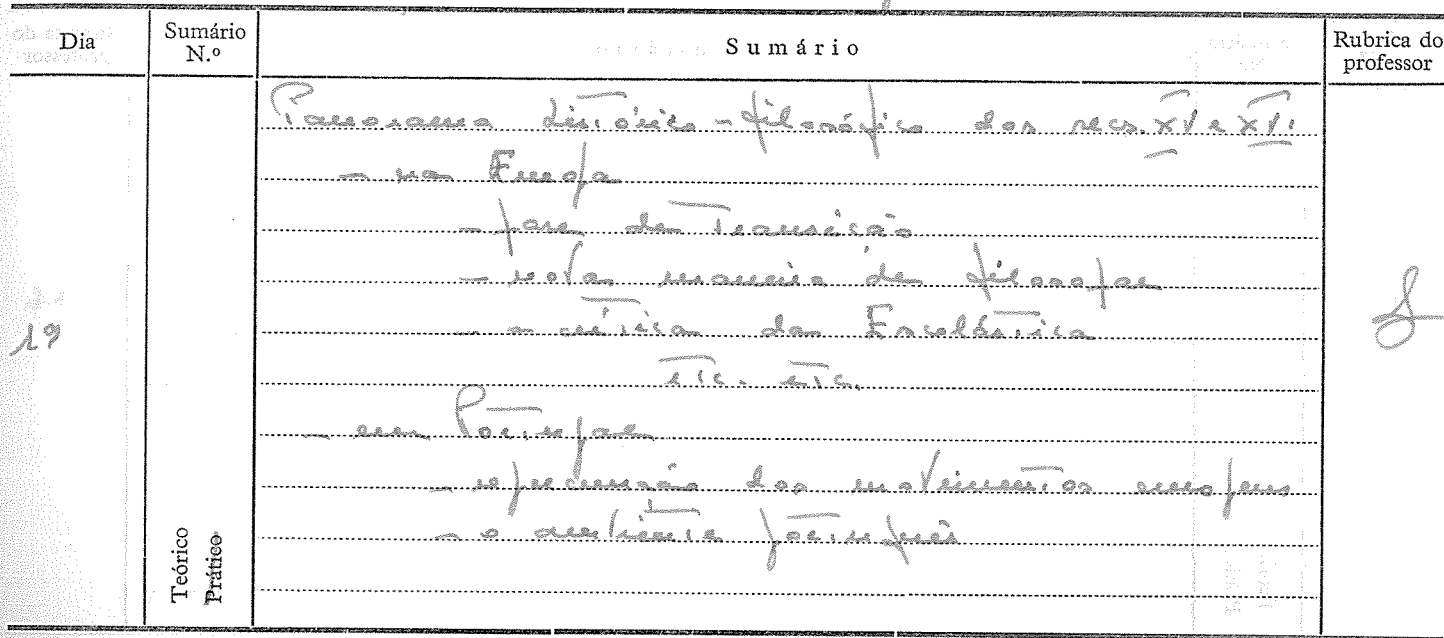 Dia
Sumário
N.º
Sumário
Rubrica do
professor
Panorama histórico-filosófico dos secs. XV e XVI
- na Europa
- fase de transição
- nova maneira de filosofar
- a crítica da Escolástica
etc. etc.
- em Portugal
- repercussão dos movimentos europeus
- o ambiente português
19
Teórico
Prático